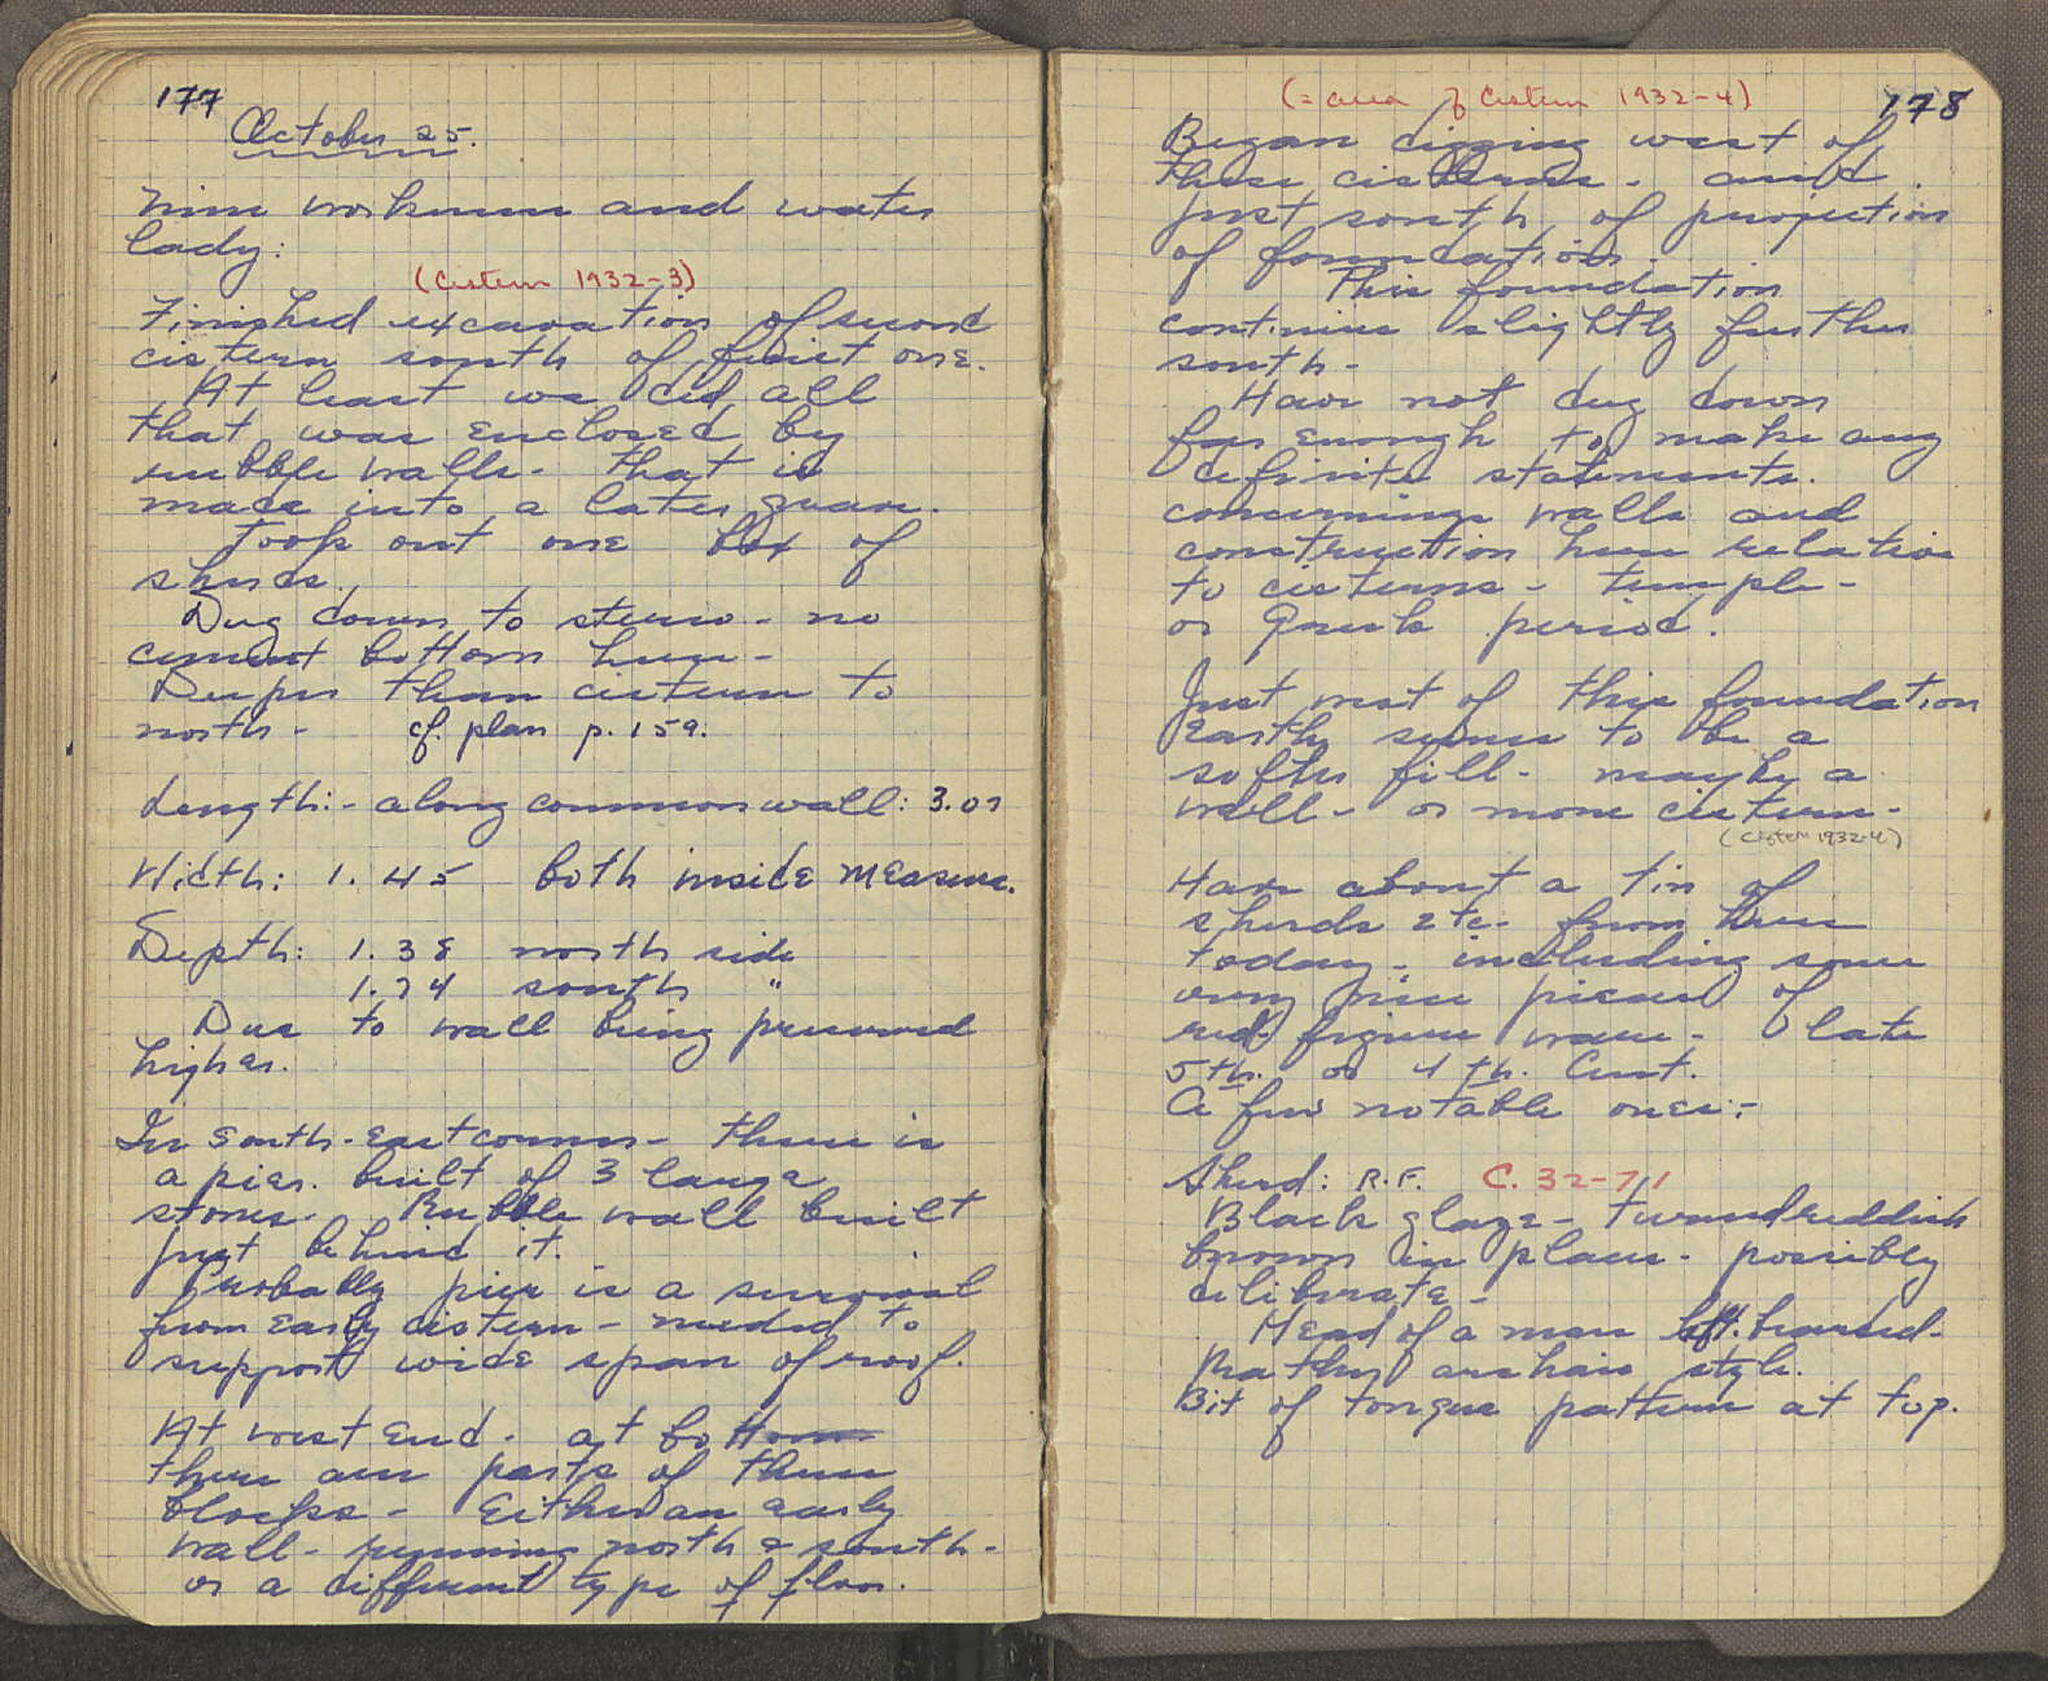 177
October 25.
Nine workmen and water
lady:
(Cistern 1932-3)
Finished excavation of second
cistern south of first one.
At least we did all
that was enclosed by
rubble walls - that is
made into a later
Took out one box of
sherds.
Dug down to stereo - no
cement bottom here -
Deeper than cistern to
north - cf. plan p. 159.
Length:- along common wall: 3.07
Width: 1.45 both inside measure.
Depth: 1.38 north side
1.74 south "
Due to wall being preserved
higher.
In south-east corner - there is
a pier. built of 3 large
stones - Rubble wall built
just behind it.
Probably pier is a survival
from early cistern - needed to
support wide span of roof.
At west end - at bottom
there are parts of three
blocks - Either an early
wall - running north & south -
or a different type of floor.
178
(= area of Cistern 1932-4)
Began digging west of
these cisterns - and
just south of projection
of foundation -
This foundation
continues slightly further
south -
Have not dug down
far enough to make any
definite statements.
concerning walls and
construction here relative
to cisterns - temple -
or Greek period.
Just west of this foundation
Earth seems to be a
softer fill - maybe a
well - or more cistern -
(Cistern 1932-4)
Have about a tin of
sherds etc - from here
today - including some
very nice pieces of
red figure ware - late
5th. or 4th. Cent.
A few notable ones:-
Sherd: R.F. C. 32-71
Black glaze - turned reddish
brown in places - possibly
deliberate -
Head of a man left. bearded -
Rather archaic style.
Bit of tongue pattern at top.